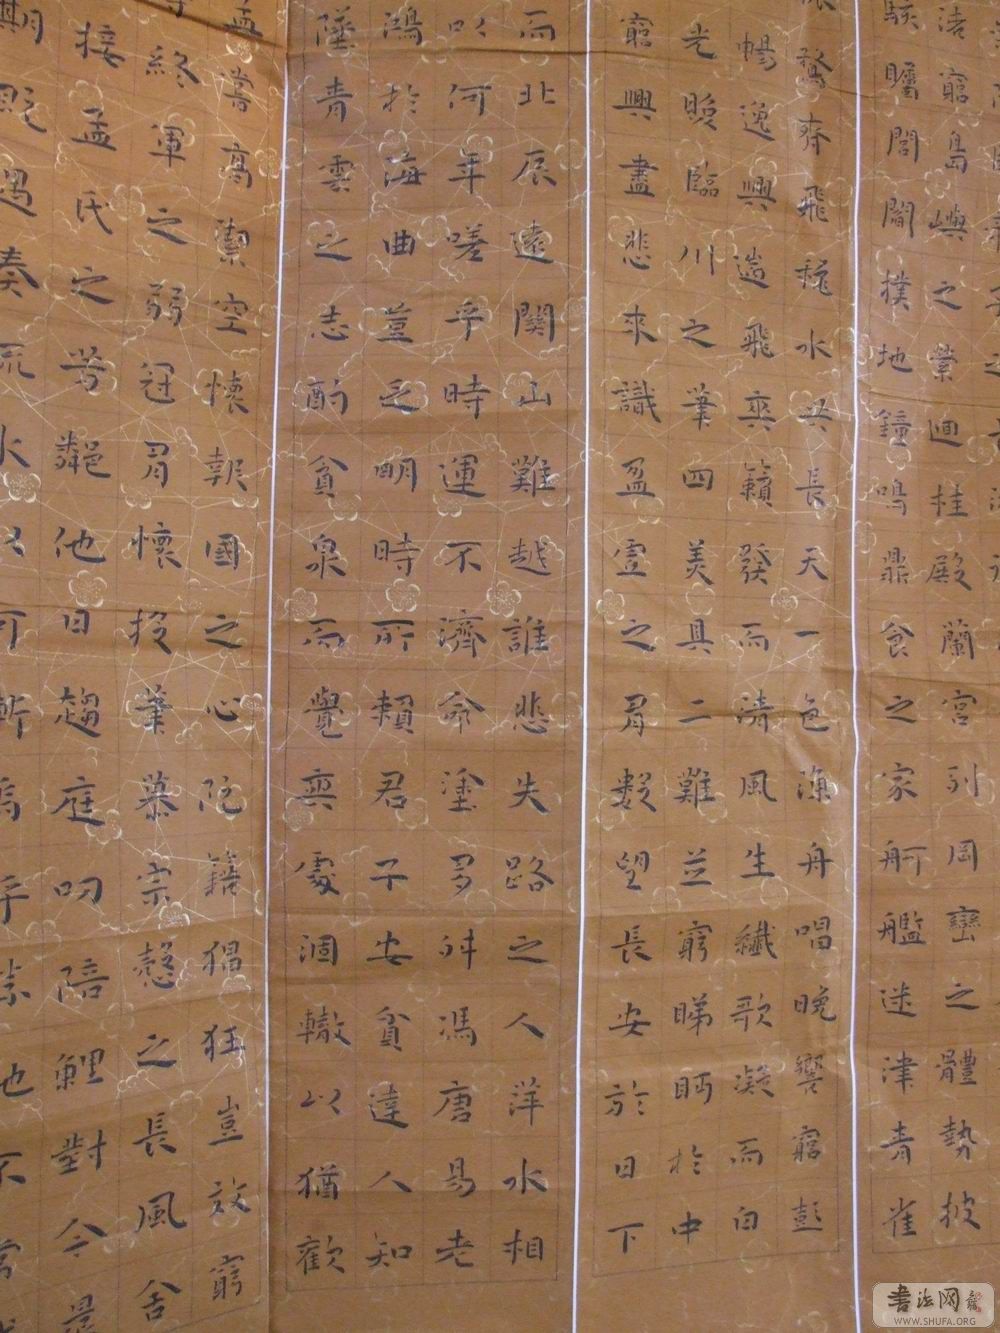 渚窮島嶼之縈迴桂殿蘭宮列岡巒之體勢披
駭矚閭閻撲地鐘鳴鼎食之家舸艦迷津青雀
鶩齊飛秋水共長天一色漁舟唱晚響窮彭
暢逸興遄飛爽籟發而清風生纖歌凝而白
光照臨川之筆四美具二難並窮睇眄於中
窮興盡悲來識盈虛之有數望長安於日下
而北辰遠關山難越誰悲失路之人萍水相
以何年嗟乎時運不濟命塗多舛馮唐易老
鴻於海曲豈乏明時所賴君子安貧達人知
墜青雲之志酌貪泉而覺爽處涸轍以猶歡
孟嘗高潔空懷報國之心阮籍猖狂豈效窮
等終軍之弱冠有懷投筆慕宗愨之長風舍
接孟氏之芳鄰他日趨庭叨陪鯉對今晨
期既遇奏流水以何慚
书法网
WWW.SHUFA.ORG